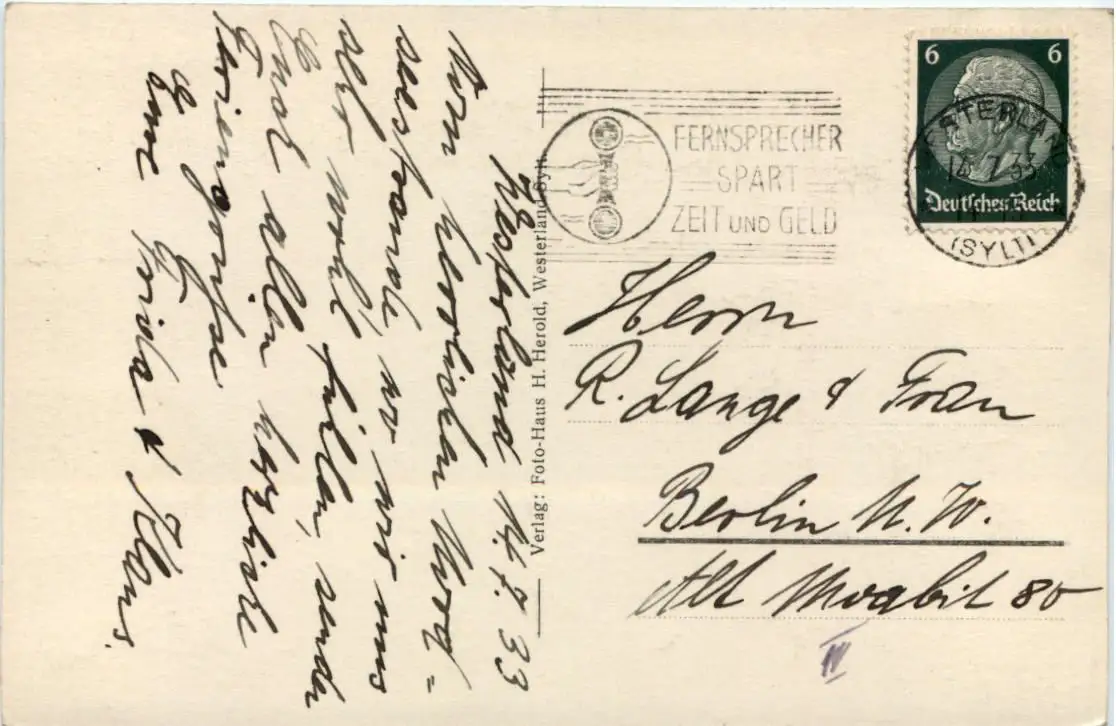 Westerland 14.7.33
Vom herrlichen Nord-
seestrand, wo wir uns
sehr wohl fühlen, senden
Euch allen herzliche
Feriengrüße
Eure Frida & Hans.
Verlag: Foto-Haus H. Herold, Westerland-Sylt
FERNSPRECHER
SPART
ZEIT UND GELD
6 6
Deutsches Reich
WESTERLAND
7.33
(SYLT)
Herrn
R. Lange & Frau
Berlin N. W.
Alt Moabit 80
IV